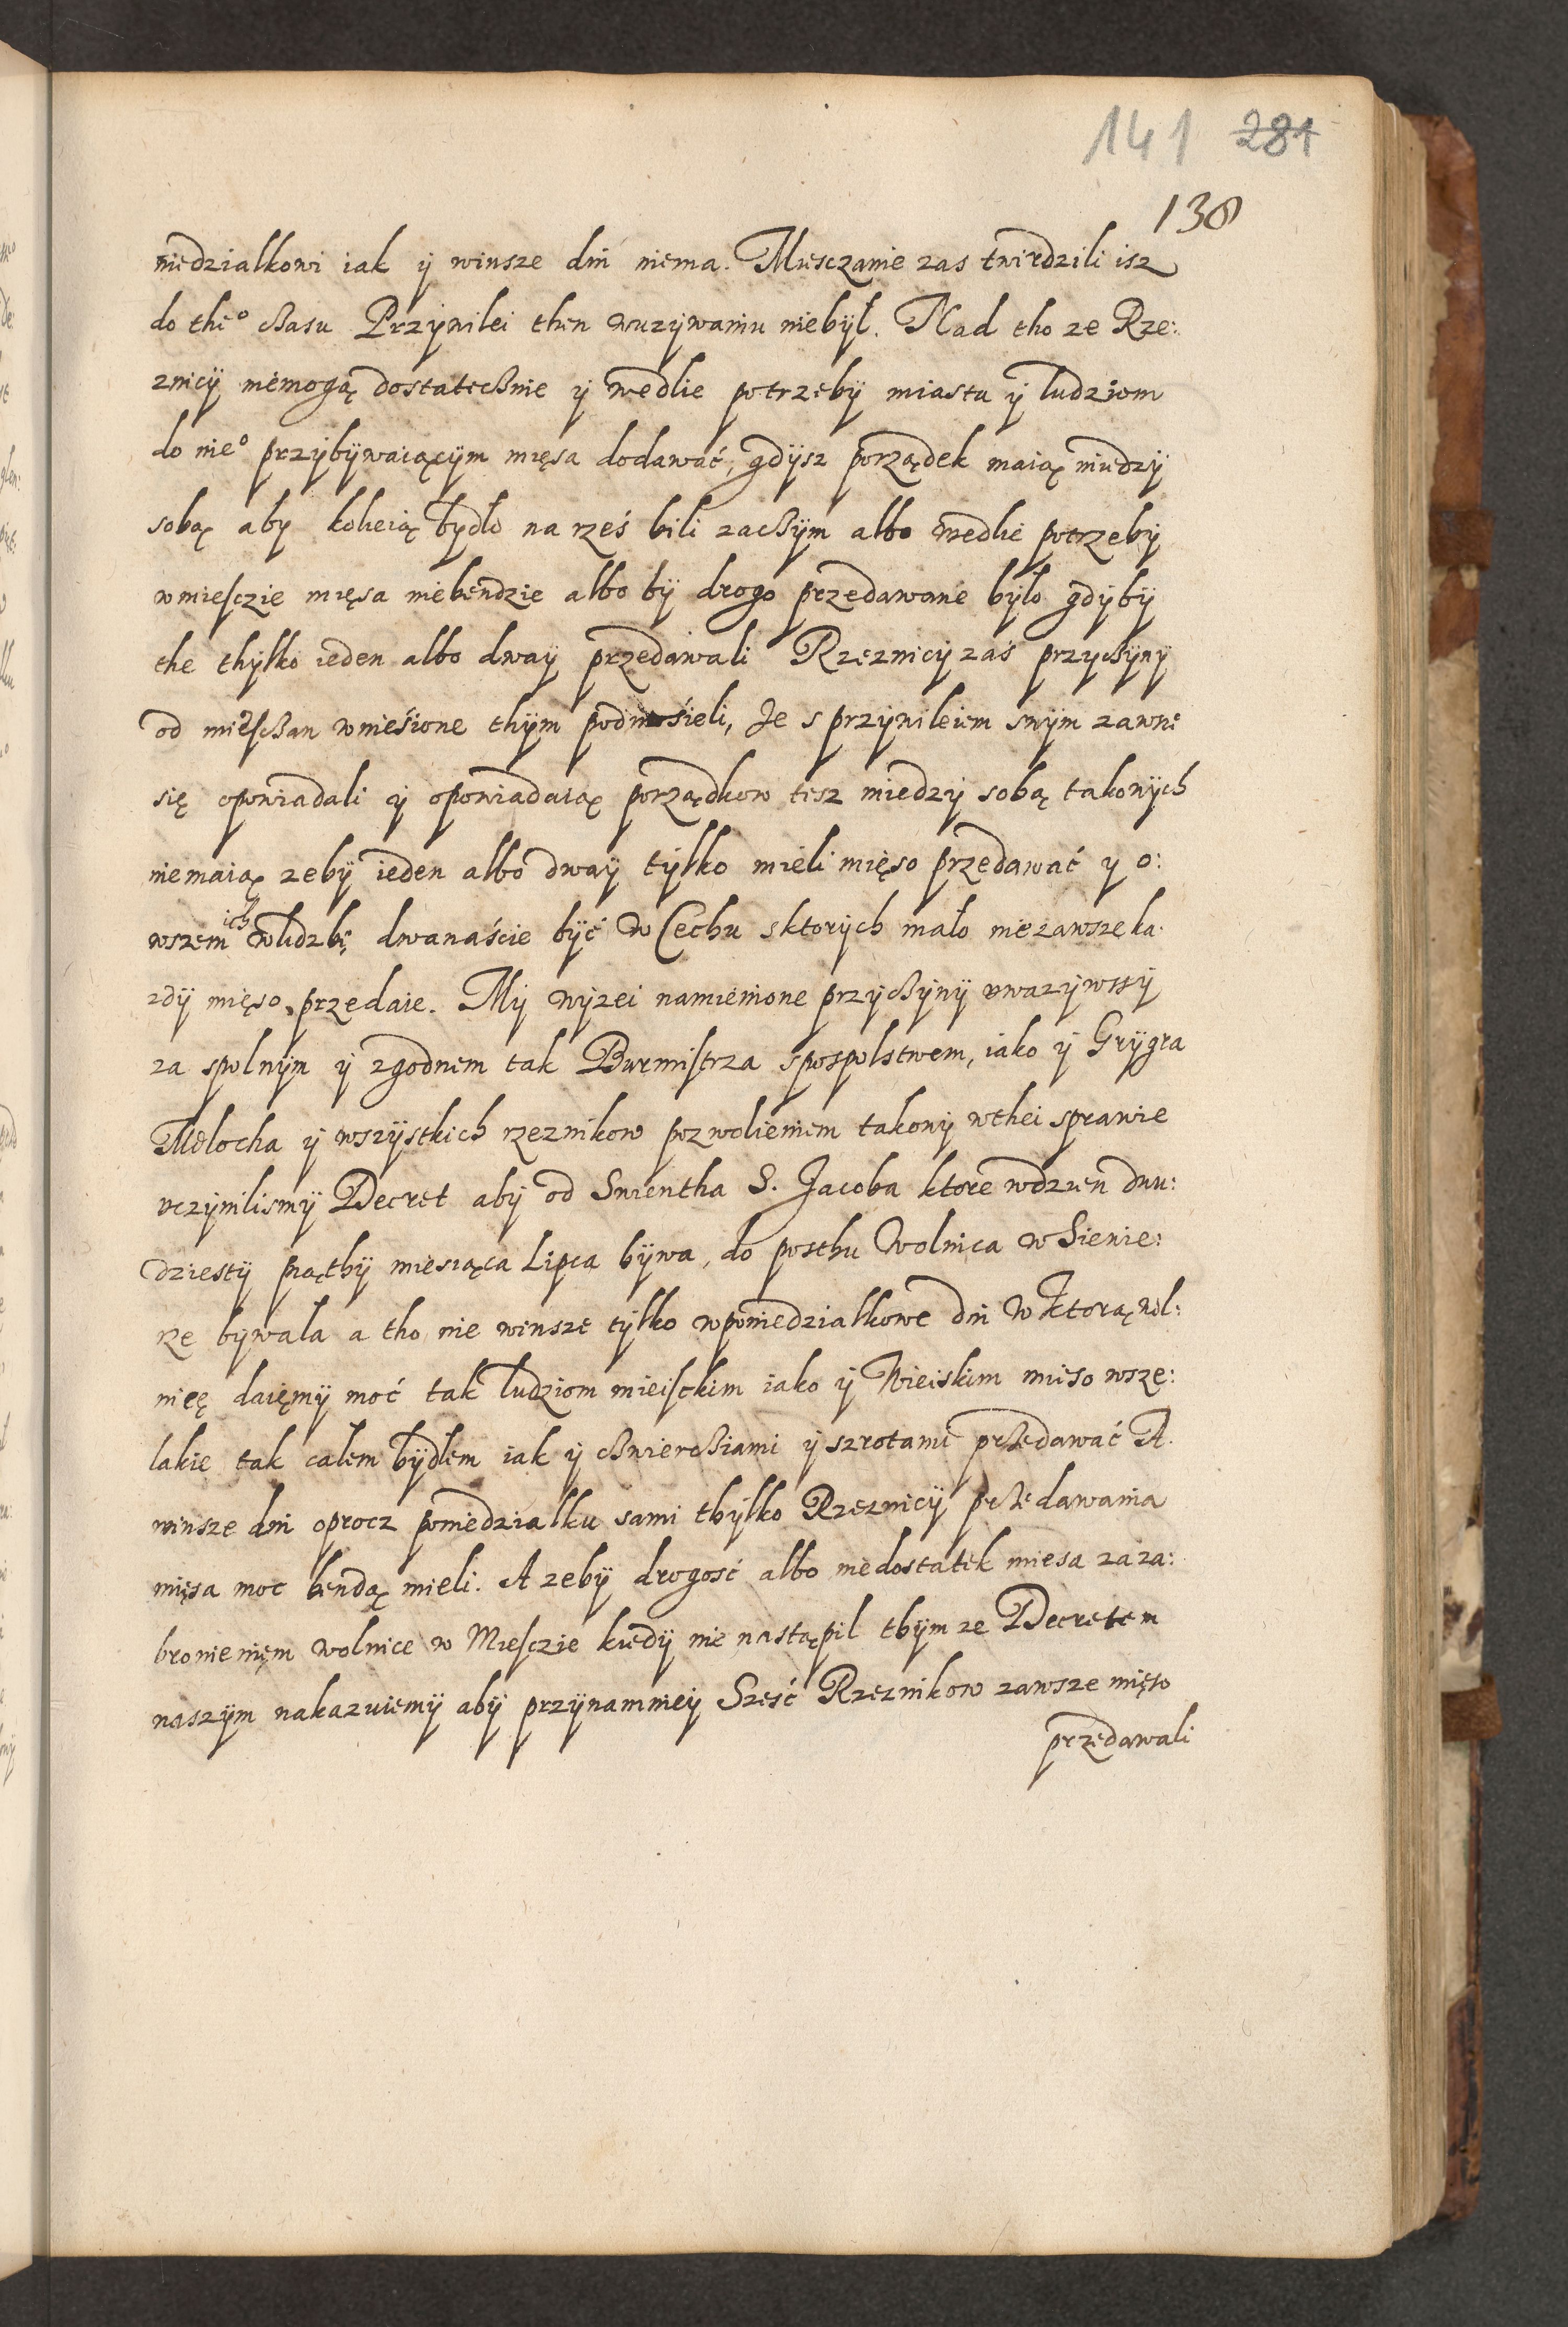 141 281
138
niedzialkowi iak ÿ winsze dni niema. Miesczanie zas twirdzili isz
do the° czasu Przÿwilei then wuzÿwaniu niebÿl. Nad tho ze Rze:
znicÿ niemogą dostatecznie ÿ wedlie potrzebÿ miasta ÿ ludziom
do nie° przÿbÿwaiącÿm mięsa dodawać, gdÿsz porządek maią miedzÿ
sobą aby koleią bÿdlo na rześ bili zaczÿm albo wedlie potrzebÿ
wmiesczie mięsa niebendzie albo bÿ drogo przedawane bÿlo gdÿbÿ
the thÿlko ieden albo dwaÿ przedawali Rzeznicÿ zaś przÿczÿnÿ
od miesczan wniesione thÿm podnosieli, Ze s przÿwileiem swÿm zawne
się opowiadali ÿ opowiadaią porządkow tesz miedzÿ sobą takowÿch
niemaią zebÿ ieden albo dwaÿ tÿlko mieli mięso przedawać y o:
wszem ich wlidzbę dwanaście bÿć w Cechu sktorÿch malo niezawsze ka:
zdÿ mięso przedaie. Mÿ wÿzei namienione przÿczÿnÿ vwazÿwssÿ
za spolnÿm ÿ zgodnem tak Burmistrza spospolstwem, iako ÿ Grÿgra
Mlocha ÿ wszÿstkich rzeznikow pozwolieniem takowÿ wthei sprawie
vczÿnilismÿ Decret abÿ od Swientha S. Jacoba ktore wdzien dwu:
dziestÿ piąthÿ miesiąca Lipca bÿwa, do posthu Wolnica w Sienie:
rze bÿwala a tho nie winsze tÿlko wponiedzialkowe dni w ktorą wol:
nicę daięmÿ moć tak ludziom mieisckim iako ÿ Wieiskim mieso wsze:
lakie tak calem bÿdlem iak ÿ czwierciami ÿ szrotami przedawać A
winsze dni oprocz poniedzialku sami thÿlko Rzeznicÿ przedawania
mięsa moc bendą mieli. A zebÿ drogość albo niedostatek miesa zaza:
bronienięm wolnice w Miesczie kiedÿ nie nastąpil thÿm ze Decretem
naszÿm nakazuiemÿ abÿ przÿnamnieÿ Sześć Rzeznikow zawsze mięso
przedawali